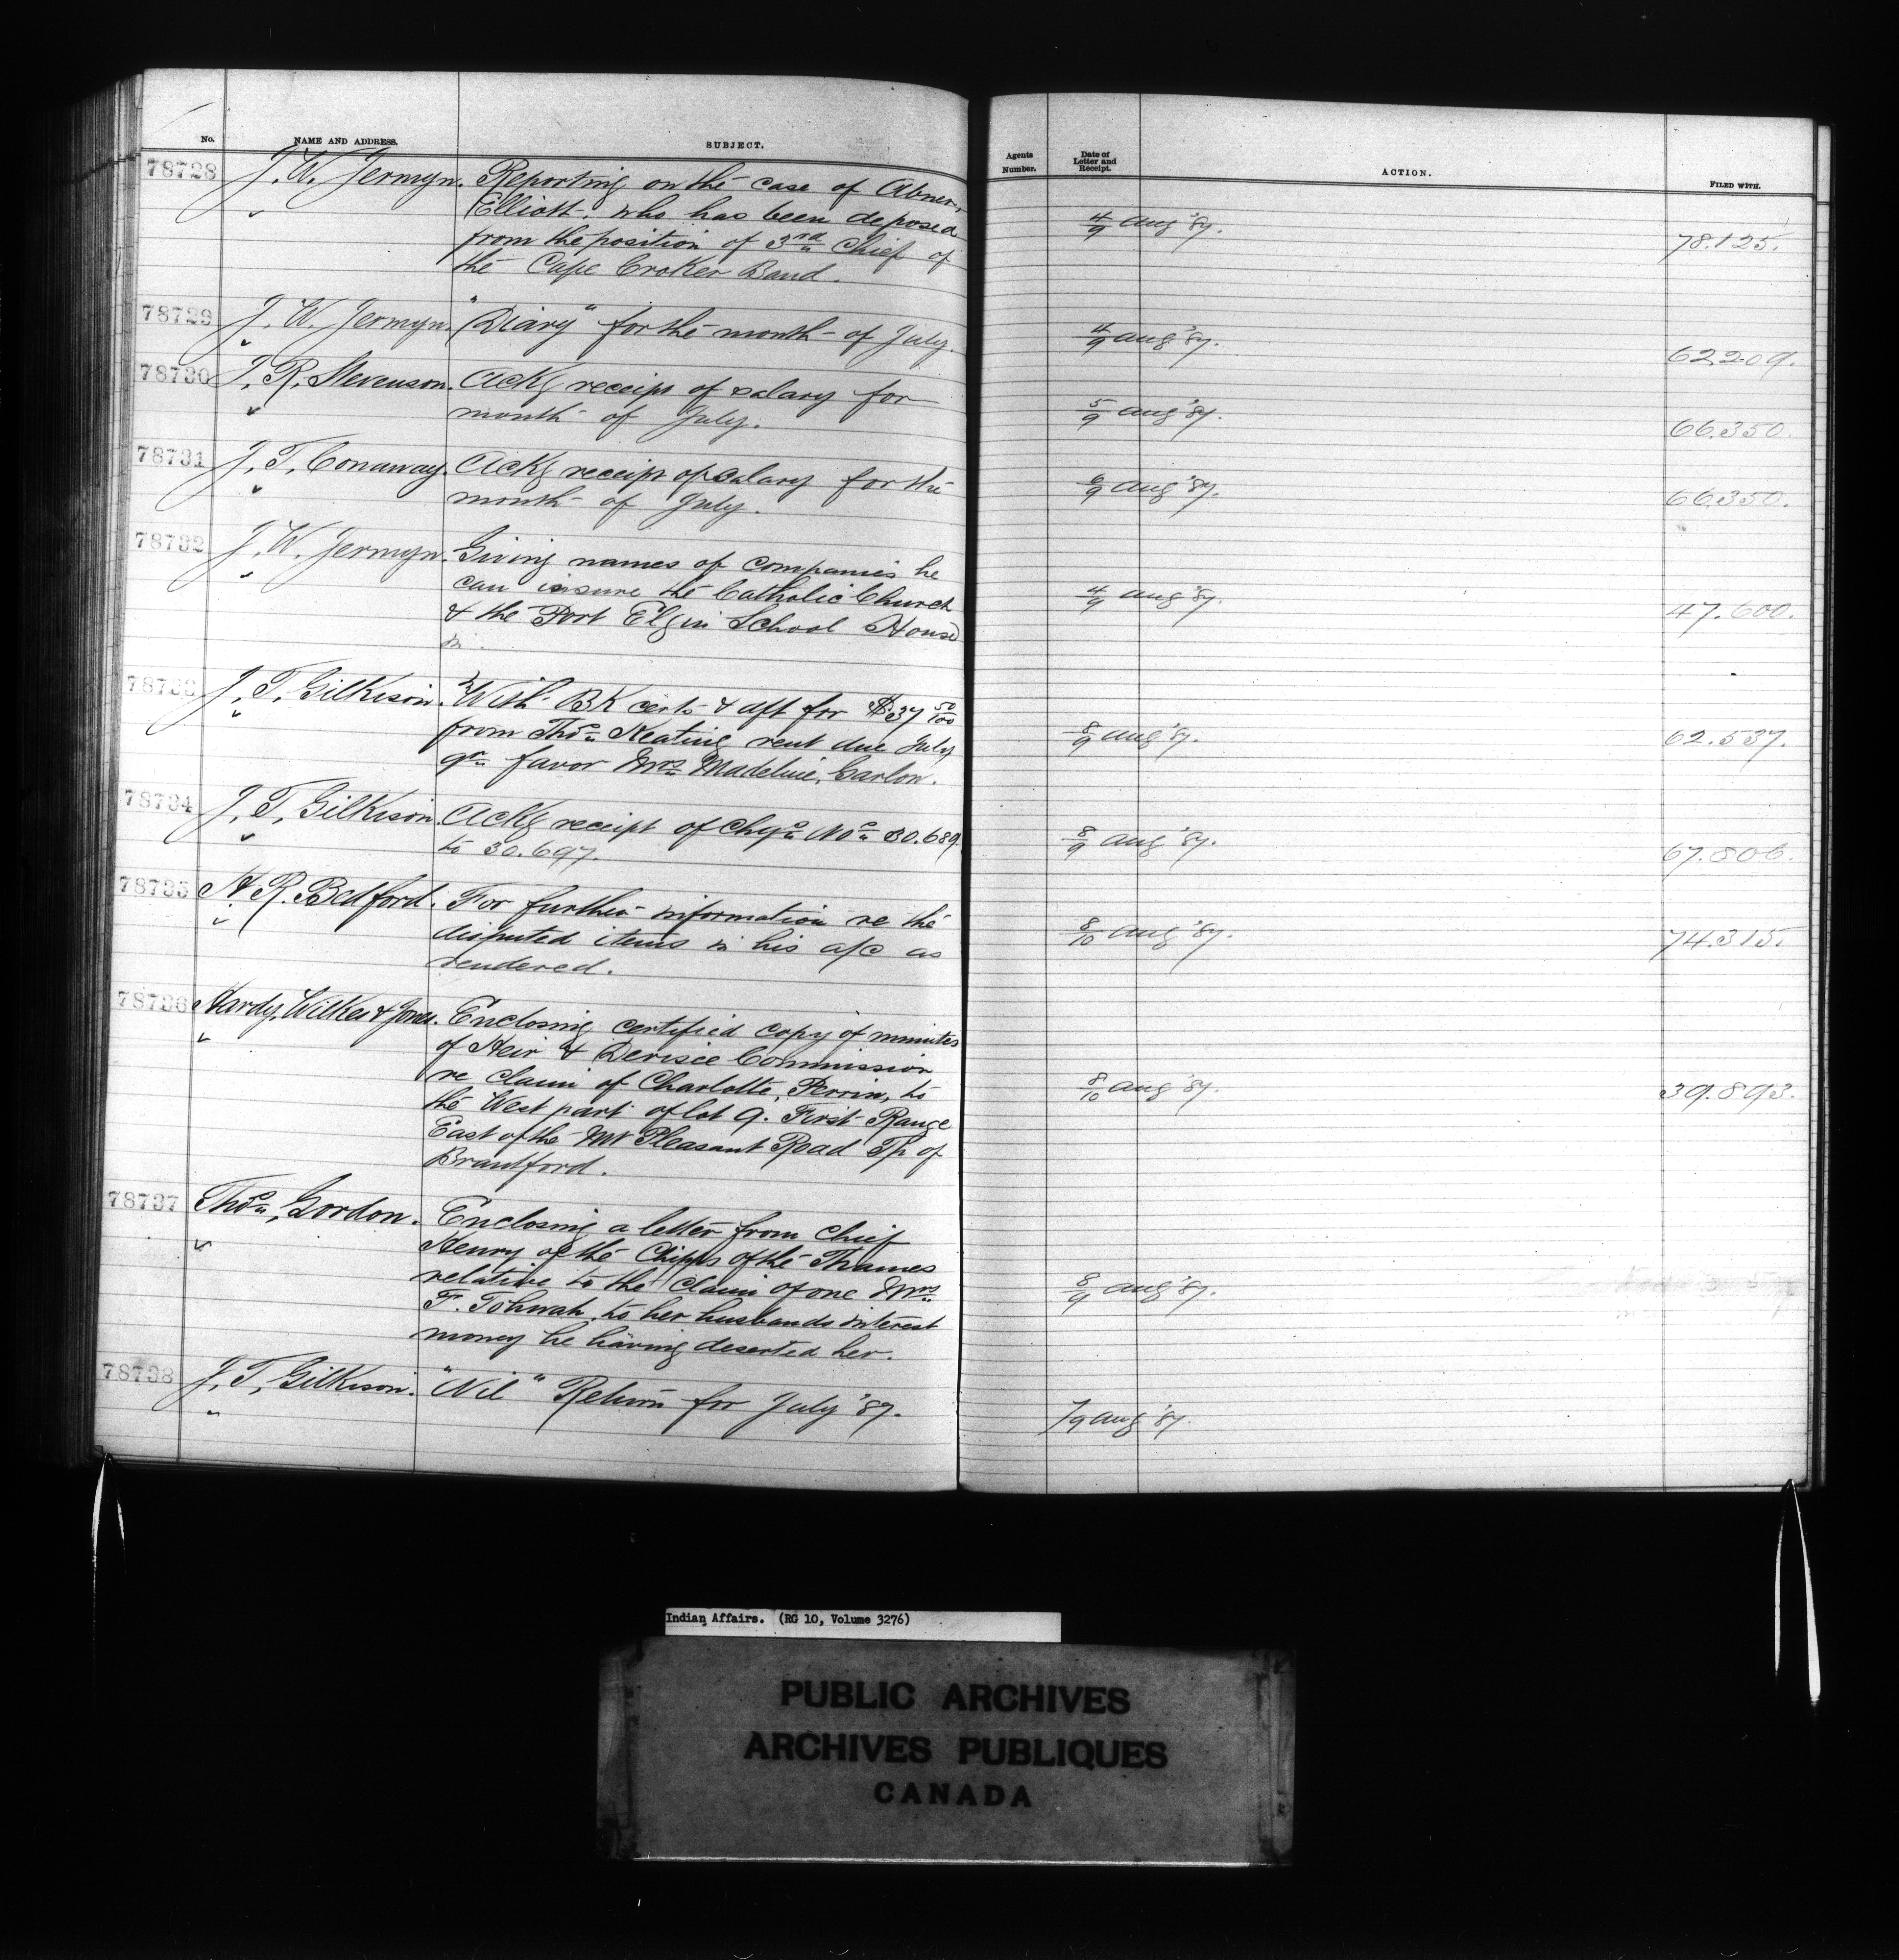 No. NAME AND ADDRESS. SUBJECT. Agents Number. Date of Letter and Receipt. ACTION. FILED WITH.
78728 J. W. Jermyn. Reporting on the case of Abner
Elliott. who has been deposed
from the position of 3rd Chief of
the Cape Croker Band.
4/9 Aug '87. 78.125.
78729 J. W. Jermyn. "Diary" for the month of July.
4/9 Aug '87. 62209.
78730 J. R. Stevenson. Ackg receipt of salary for
month of July.
5/9 Aug '87. 66.350.
78731 J. T. Conaway. Ackg receipt of salary for the
month of July.
6/9 Aug '87. 66350.
78732 J. W. Jermyn. Giving names of Companies he
can insure the Catholic Church
& the Port Elgin School House
in.
4/9 Aug '87. 47.600.
78733 J. T. Gilkison. With BK certs & dft for $37 50/100
from Thos Keating rent due July
9th favor Mrs Madeline, Garlow.
8/9 Aug '87. 62.537.
78734 J. T. Gilkison. Ackg receipt of Chqs Nos 30.689.
to 30.697.
8/9 Aug '87. 67.806.
78735 H. R. Bedford. For further information re the
disputed items in his a/c as
rendered.
8/10 Aug '87. 74.315.
78736 Hardy, Wilkes & Jones. Enclosing certified copy of minutes
of Heir & Devisee Commission
re claim of Charlotte, Perrin, to
the West part of lot 9. First Range
East of the Mt Pleasant Road Tp of
Brantford.
8/10 Aug '87. 39.893.
78737 Thos, Gordon. Enclosing a letter from Chief
Henry of the Chipps of the Thames
relative to the claim of one Mrs
F. Tohwah, to her husbands interest
money he having deserted her.
8/9 Aug '87.
78738 J. T. Gilkison. "Nil" Return for July '87.
7/9 Aug '87.
Indian Affairs. (RG 10, Volume 3276)
PUBLIC ARCHIVES
ARCHIVES PUBLIQUES
CANADA